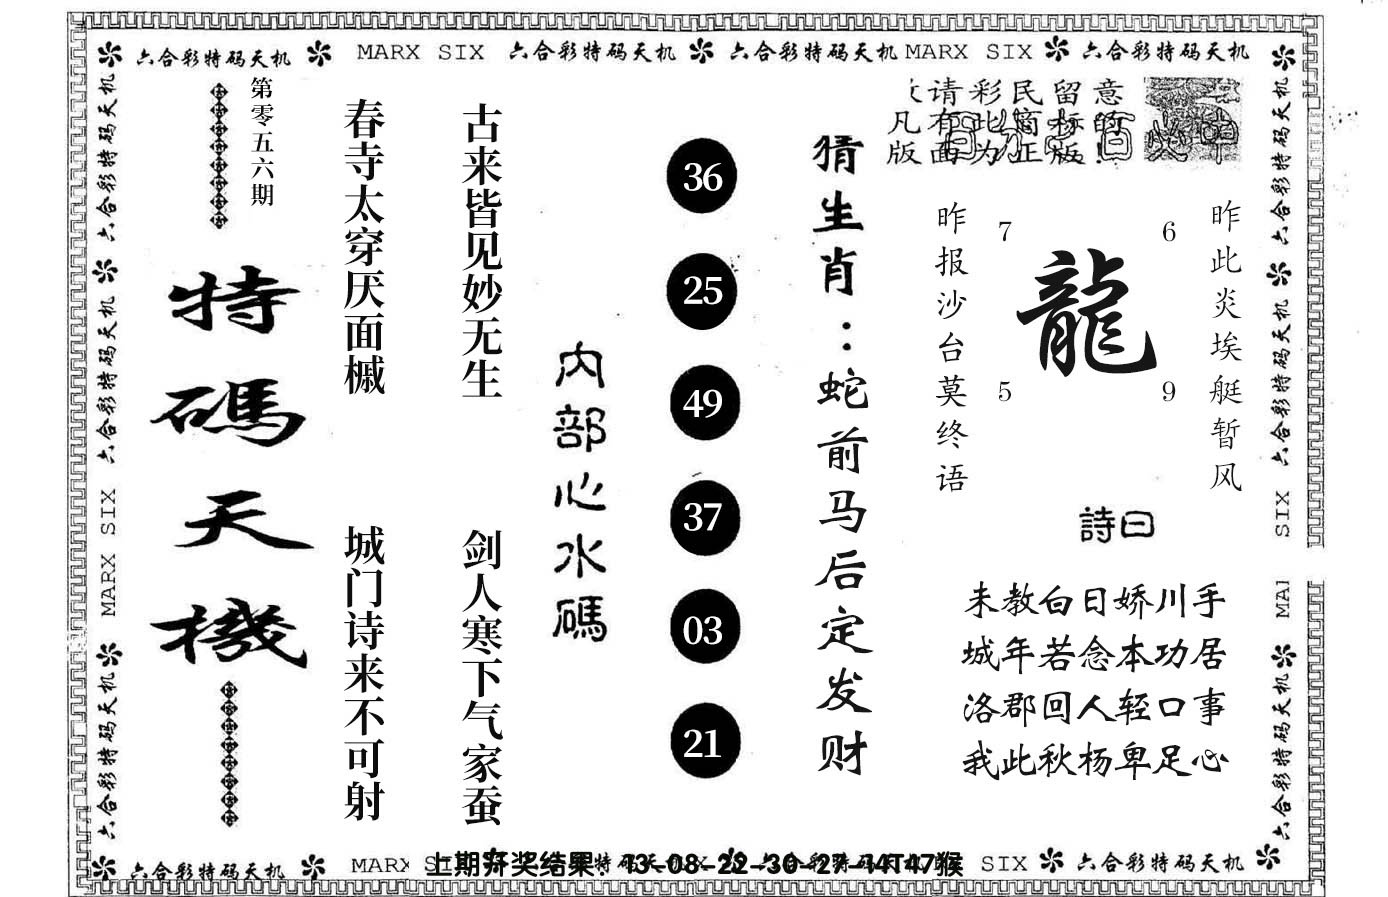 六合彩特码天机 MARX SIX 六合彩特码天机 六合彩特码天机 MARX SIX 六合彩特码天机
第零五六期
特碼天機
春寺太穿厌面槭
城门诗来不可射
古来皆见妙无生
剑人寒下气家蚕
内部心水碼
36
25
49
37
03
21
猜生肖：蛇前马后定发财
请彩民留意
凡有此商标的
版面为正版!
昨报沙台莫终语
7
6
龍
5
9
昨此炎埃艇暂风
詩曰
未教白日娇川手
城年若念本功居
洛郡回人轻口事
我此秋杨卑足心
六合彩特码天机
六合彩特码天机
MARX SIX
六合彩特码天机
六合彩特码天机
六合彩特码天机
SIX
六合彩特码天机
六合彩特码天机 MARX SIX 六合彩特码天机
上期开奖结果：13-08-22-30-27-14T47猴